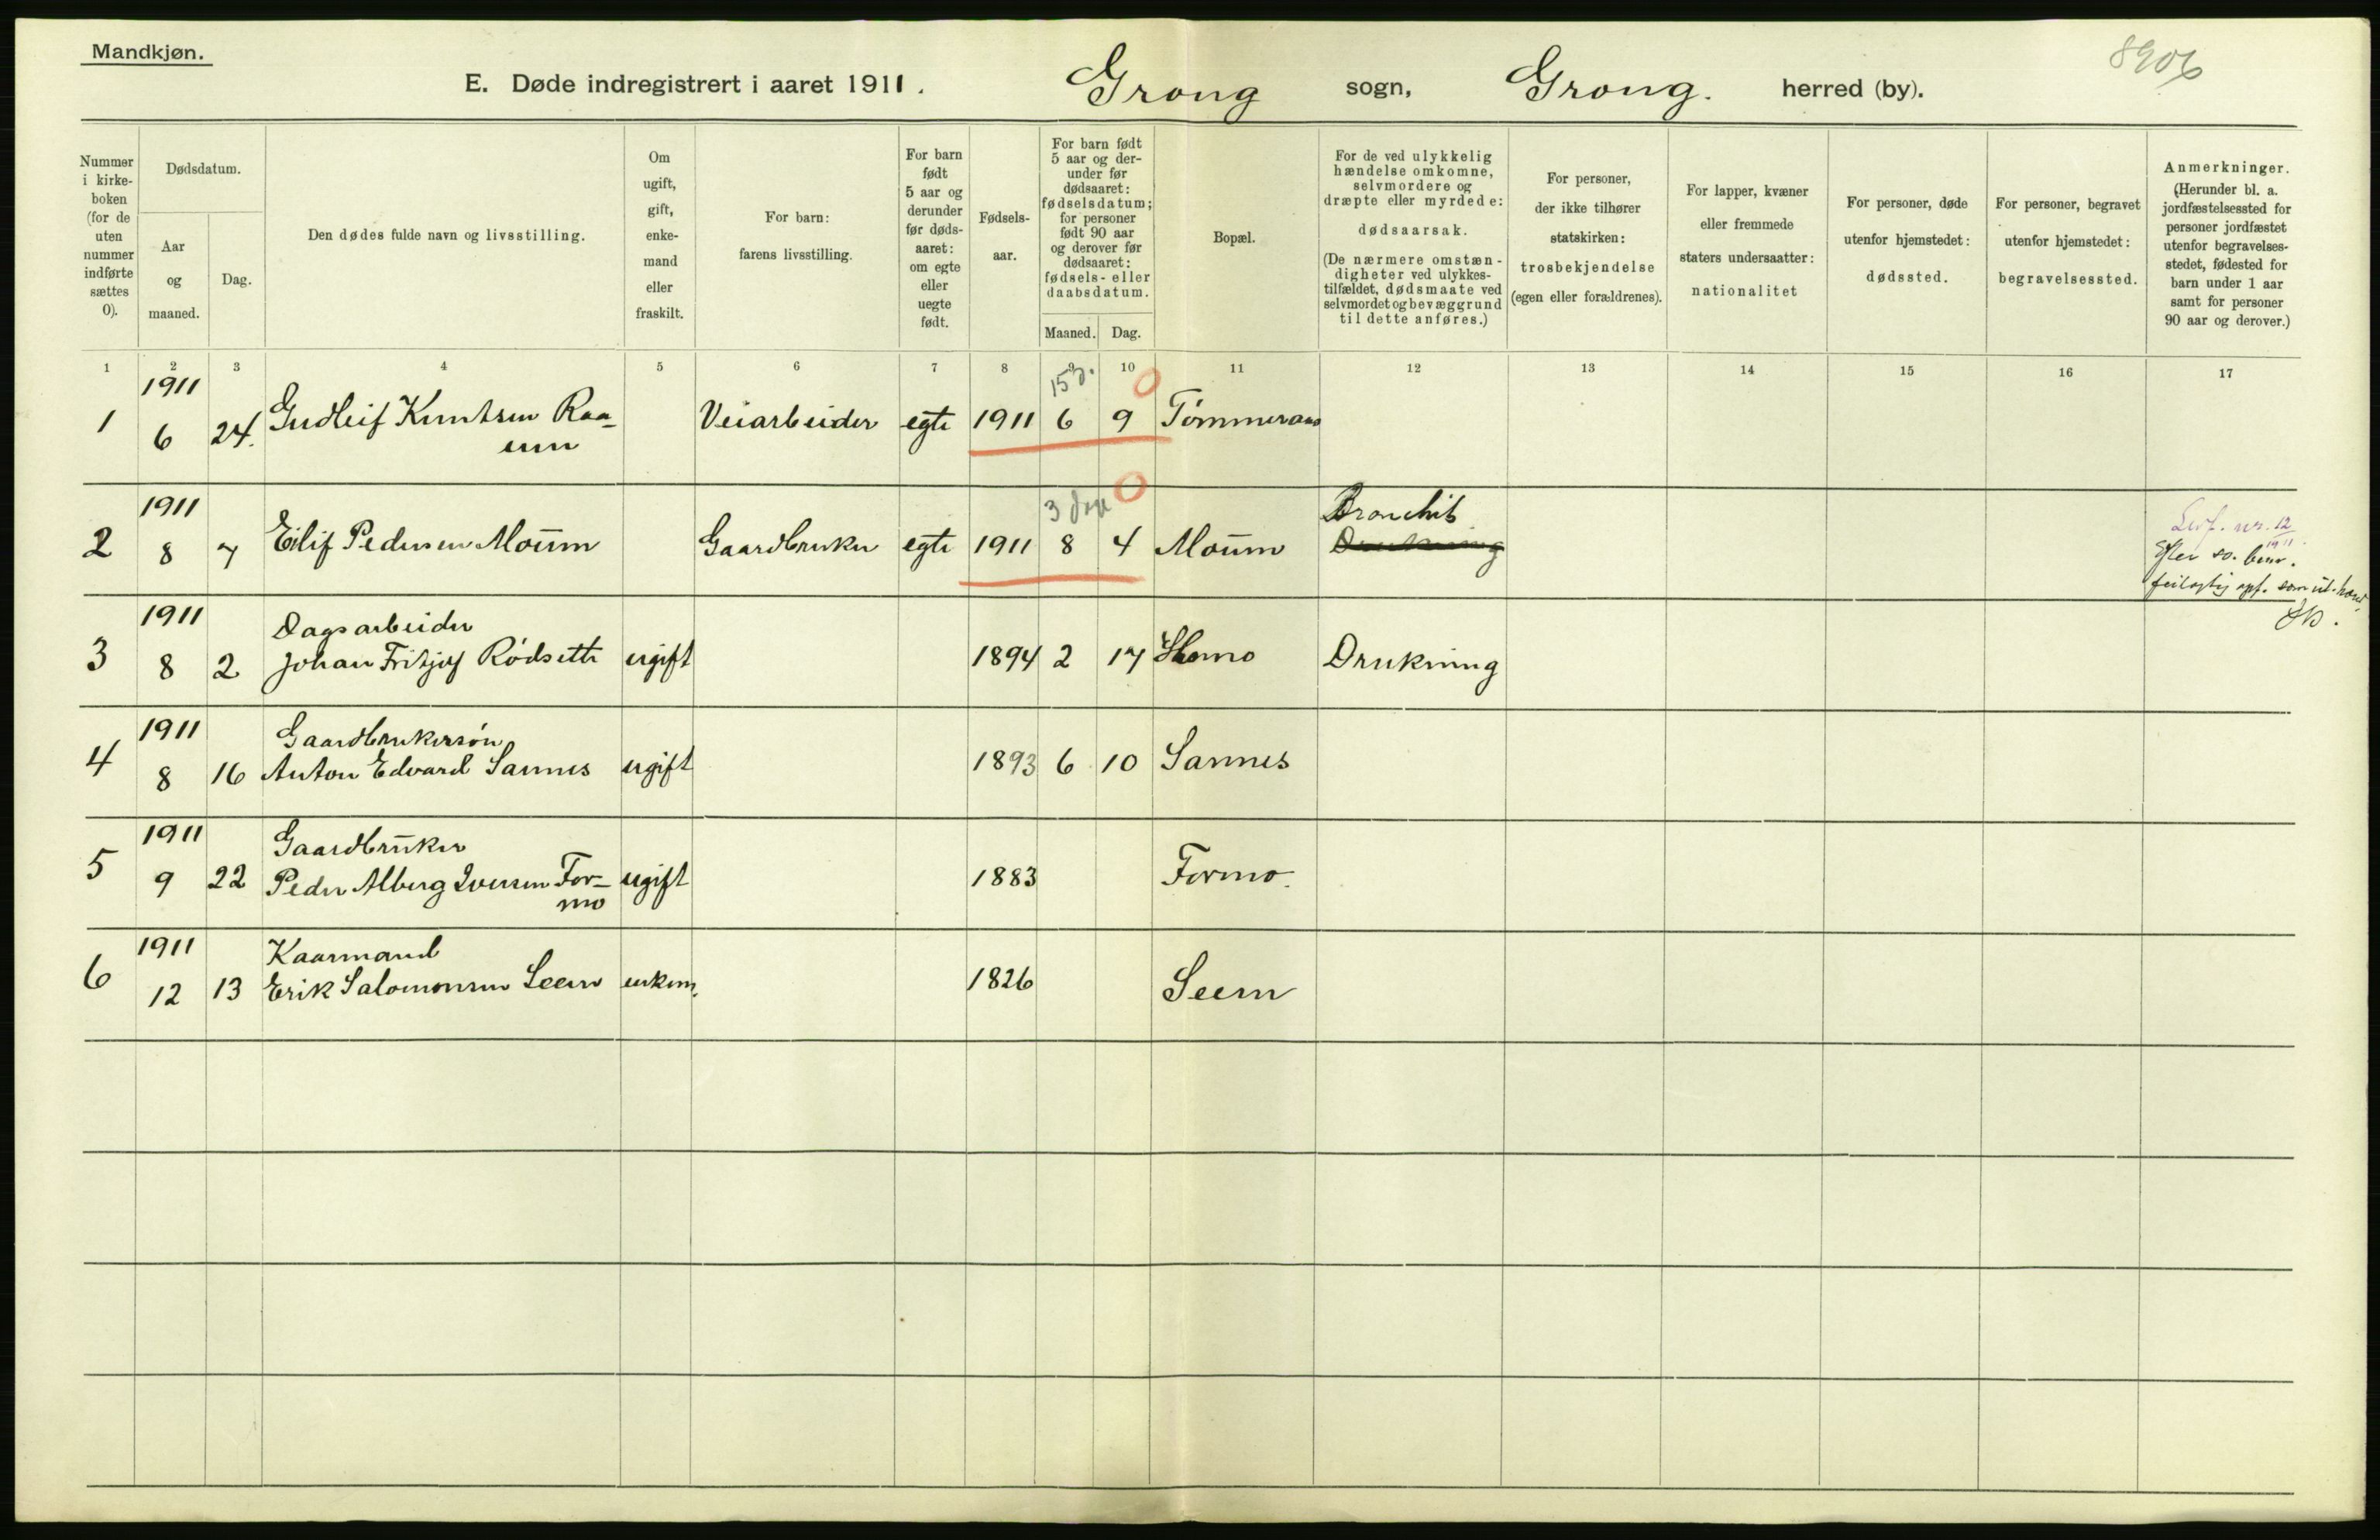 Mandkjøn.
8906
E. Døde indregistrert i aaret 1911. Grong sogn, Grong. herred (by).
Nummer i kirke-boken (for de uten nummer indførte sættes 0).
Dødsdatum.
Aar og maaned.
Dag.
Den dødes fulde navn og livsstilling.
Om ugift, gift, enke-mand eller fraskilt.
For barn: farens livsstilling.
For barn født 5 aar og derunder før døds-aaret: om egte eller uegte født.
Fødsels-aar.
For barn født 5 aar og der-under før dødsaaret: fødselsdatum; for personer født 90 aar og derover før dødsaaret: fødsels- eller daabsdatum.
Maaned. Dag.
Bopæl.
For de ved ulykkelig hændelse omkomne, selvmordere og dræpte eller myrdede: dødsaarsak. (De nærmere omstæn-digheter ved ulykkes-tilfældet, dødsmaate ved selvmordet og bevæggrund til dette anføres.)
For personer, der ikke tilhører statskirken: trosbekjendelse (egen eller forældrenes).
For lapper, kvæner eller fremmede staters undersaatter: nationalitet
For personer, døde utenfor hjemstedet: dødssted.
For personer, begravet utenfor hjemstedet: begravelsessted.
Anmerkninger. (Herunder bl. a. jordfæstelsessted for personer jordfæstet utenfor begravelses-stedet, fødested for barn under 1 aar samt for personer 90 aar og derover.)
1 2 3 4 5 6 7 8 9 10 11 12 13 14 15 16 17
1911 15 d. 0
1 6 24. Gudleif Knutsen Raa-
um Veiarbeider egte 1911 6 9 Tømmeraas
1911 3 dage 0 Bronchit
2 8 7 Eilif Pedersen Moum Gaardbruker egte 1911 8 4 Moum Drukning
nr. 12
1911
Efter so. bem.
feilagtig opf. som
1911 Dagsarbeider
3 8 2 Johan Fritjof Rødseth ugift 1894 2 17 Homo Drukning
1911 Gaardbrukersøn
4 8 16 Anton Edvard Sannes ugift 1893 6 10 Sannes
1911 Gaardbruker
5 9 22 Peder Alberg Iversen For-
mo ugift 1883 Formo.
1911 Kaarmand
6 12 13 Erik Salomonsen Seem enkem. 1826 Seem